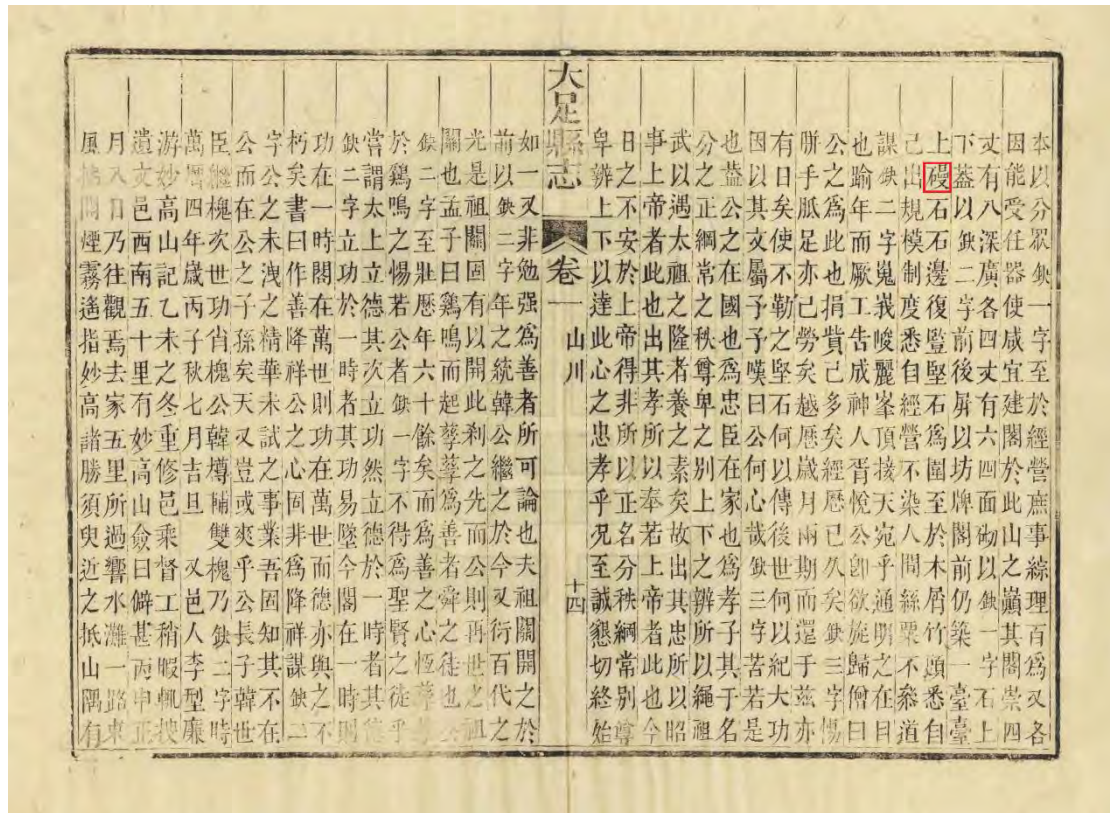 本以分眾鈌一字至於經營庶事綜理百爲又各
因能受任器使咸宜建閣於此山之巔其閣崇四
丈有八深廣各四丈有六四面砌以鈌一字石上
下蓋以鈌二字前後屏以坊牌閣前仍築一臺臺
上磴石石邊復竪堅石爲圍至於木屑竹頭悉自
己出規模制度悉自經營不染人間絲粟不叅道
謀鈌二字嵬峩峻麗峯頂接天宛乎通明之在目
也踰年而厥工告成神人胥悅公卽欲旋歸僧曰
公之爲此也捐貲己多矣經歷已久矣鈌三字惕
胼手胝足亦己勞矣越歷歲月兩期而還于兹亦
有日矣使不勒之堅石何以傳後世何以紀大功
因以其文屬予予嘆曰公何心哉鈌三字苦若是
也葢公之在國也爲忠臣在家也爲孝子其于名
分之正綱常之秩尊卑之別上下之辨所以繩祖
武以遇太祖之隆者養之素矣故出其忠所以昭
事上帝者此也出其孝所以奉若上帝者此也今
日之不安於上帝得非所以正名分秩綱常別尊
卑辨上下以達此心之忠孝乎況至誠懇切終始
大足縣志 卷一 山川 十四
如一又非勉强爲善者所可論也夫祖關開之於
前以鈌二字年之統韓公繼之於今又衍百代之
光是祖關固有以開此刹之先而公則再世之祖
關也孟子曰鷄鳴而起孳孳爲善者舜之徒也公
鈌二字至壯歷年六十餘矣而爲善之心恆孳孳
於鷄鳴之惕若公者鈌一字不得爲聖賢之徒乎
嘗謂太上立德其次立功然立德於一時者其德
鈌二字立功於一時者其功易墜今閣在一時則
功在一時閣在萬世則功在萬世而德亦與之不
朽矣書曰作善降祥公之心固非爲降祥謀鈌二
字而公之未洩之精華未試之事業吾固知其不
公而在公之子孫矣天又豈或爽乎公長子韓世
臣繼槐次世功肖槐公韓墫輔雙槐乃鈌二字時
萬曆四年歲丙子秋七月吉旦 又邑人李型廉
游妙高山記乙未之冬重修邑乘督工稍暇輒披
遺文邑西南五十里有妙高山僉曰僻甚丙申正
月入日乃往觀焉去家五里所過響水灘一路東
風 煙霧遙指妙高諸勝須臾近之抵山隅有